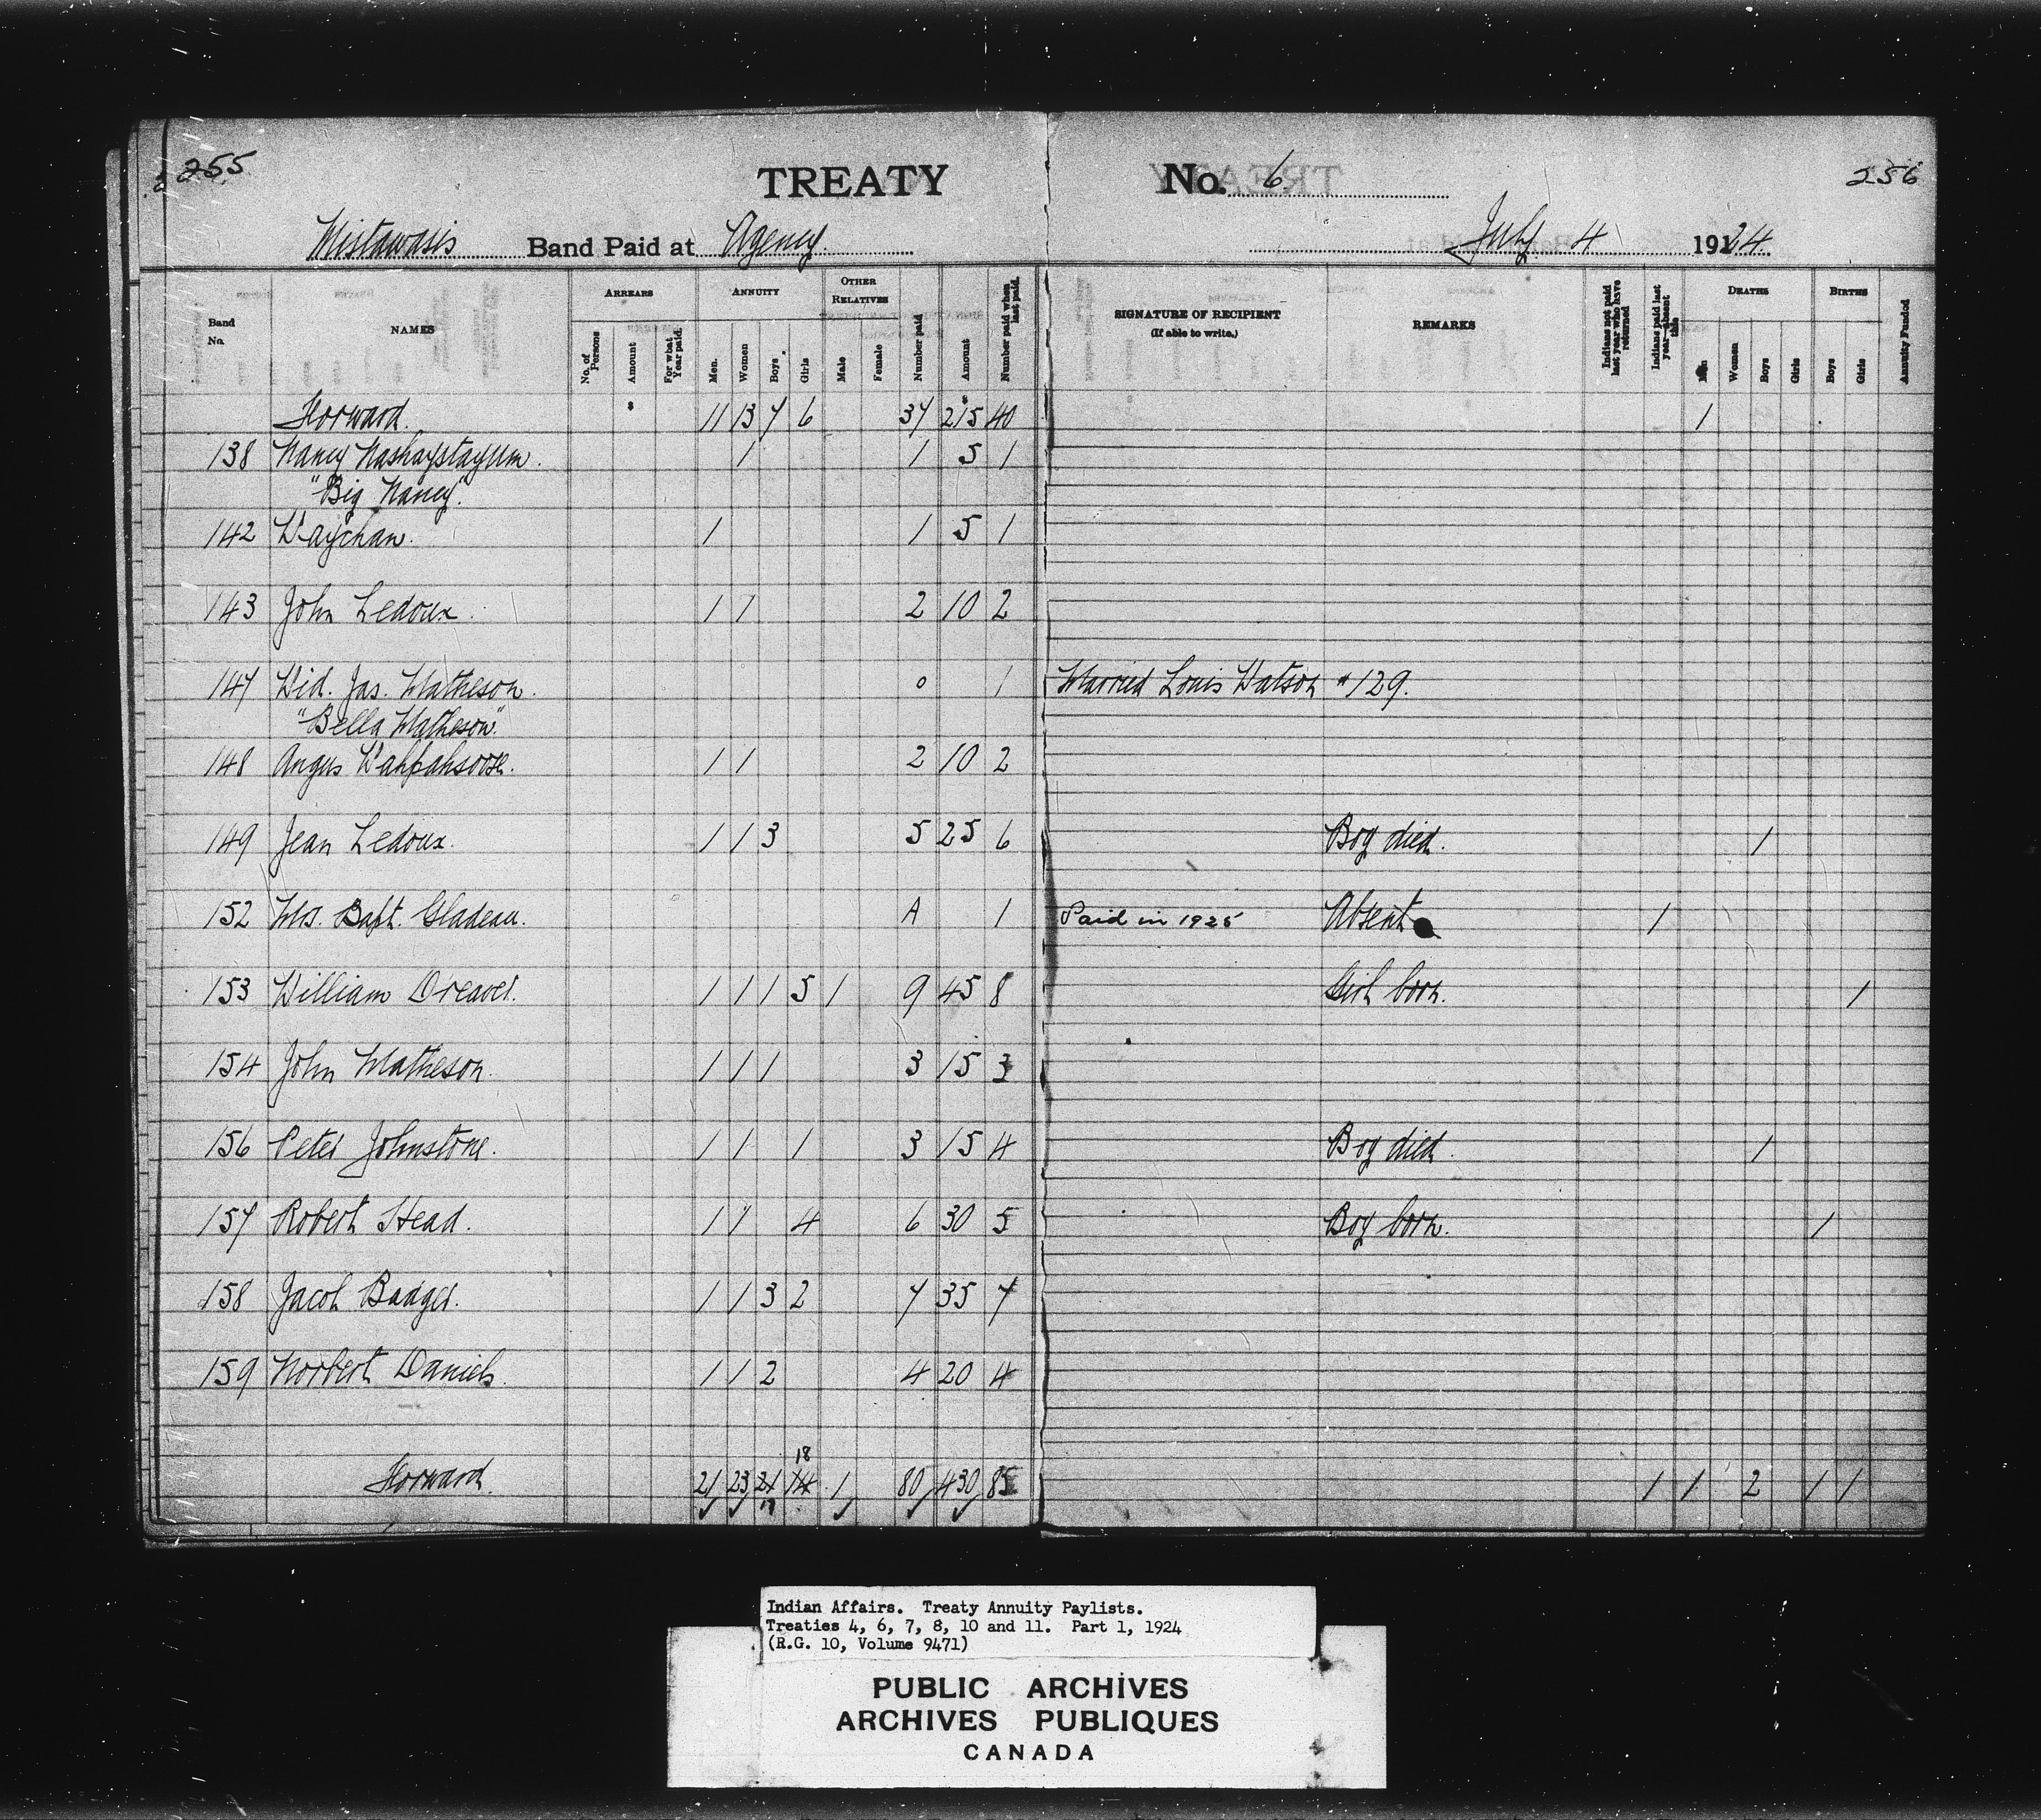 255
TREATY No. 6
256
Mistawasis Band Paid at Agency July 4 1924
Band No. NAMES ARREARS No. of Persons Amount For what Year paid. ANNUITY Men. Women Boys. Girls OTHER RELATIVES Male Female Number paid Amount Number paid when last paid. SIGNATURE OF RECIPIENT (If able to write.) REMARKS Indians not paid last year who have returned Indians paid last year—absent this DEATHS Men Women Boys Girls BIRTHS Boys Girls Annuity Funded
Forward. 11 13 7 6 37 215 40 1
138 Nancy Nashaystayum. 1 1 5 1
"Big Nancy".
142 Waychan. 1 1 5 1
143 John Ledoux. 1 1 2 10 2
147 Wid. Jas. Matheson. 0 1 Married Louis Watson #129.
"Bella Matheson".
148 Angus Wahpahsoose. 1 1 2 10 2
149 Jean Ledoux. 1 1 3 5 25 6 Boy died. 1
152 Mrs. Bapt. Gladeau. A 1 Paid in 1925 Absent 1
153 William Dreaver. 1 1 1 5 1 9 45 8 Girl born. 1
154 John Matheson. 1 1 1 3 15 3
156 Peter Johnstone. 1 1 1 3 15 4 Boy died. 1
157 Robert Head. 1 1 4 6 30 5 Boy born. 1
158 Jacob Badger. 1 1 3 2 7 35 7
159 Norbert Daniels. 1 1 2 4 20 4
18
Forward. 21 23 21 14 1 80 430 85 1 1 2 1 1
17
Indian Affairs. Treaty Annuity Paylists.
Treaties 4, 6, 7, 8, 10 and 11. Part 1, 1924
(R.G. 10, Volume 9471)
PUBLIC ARCHIVES
ARCHIVES PUBLIQUES
CANADA